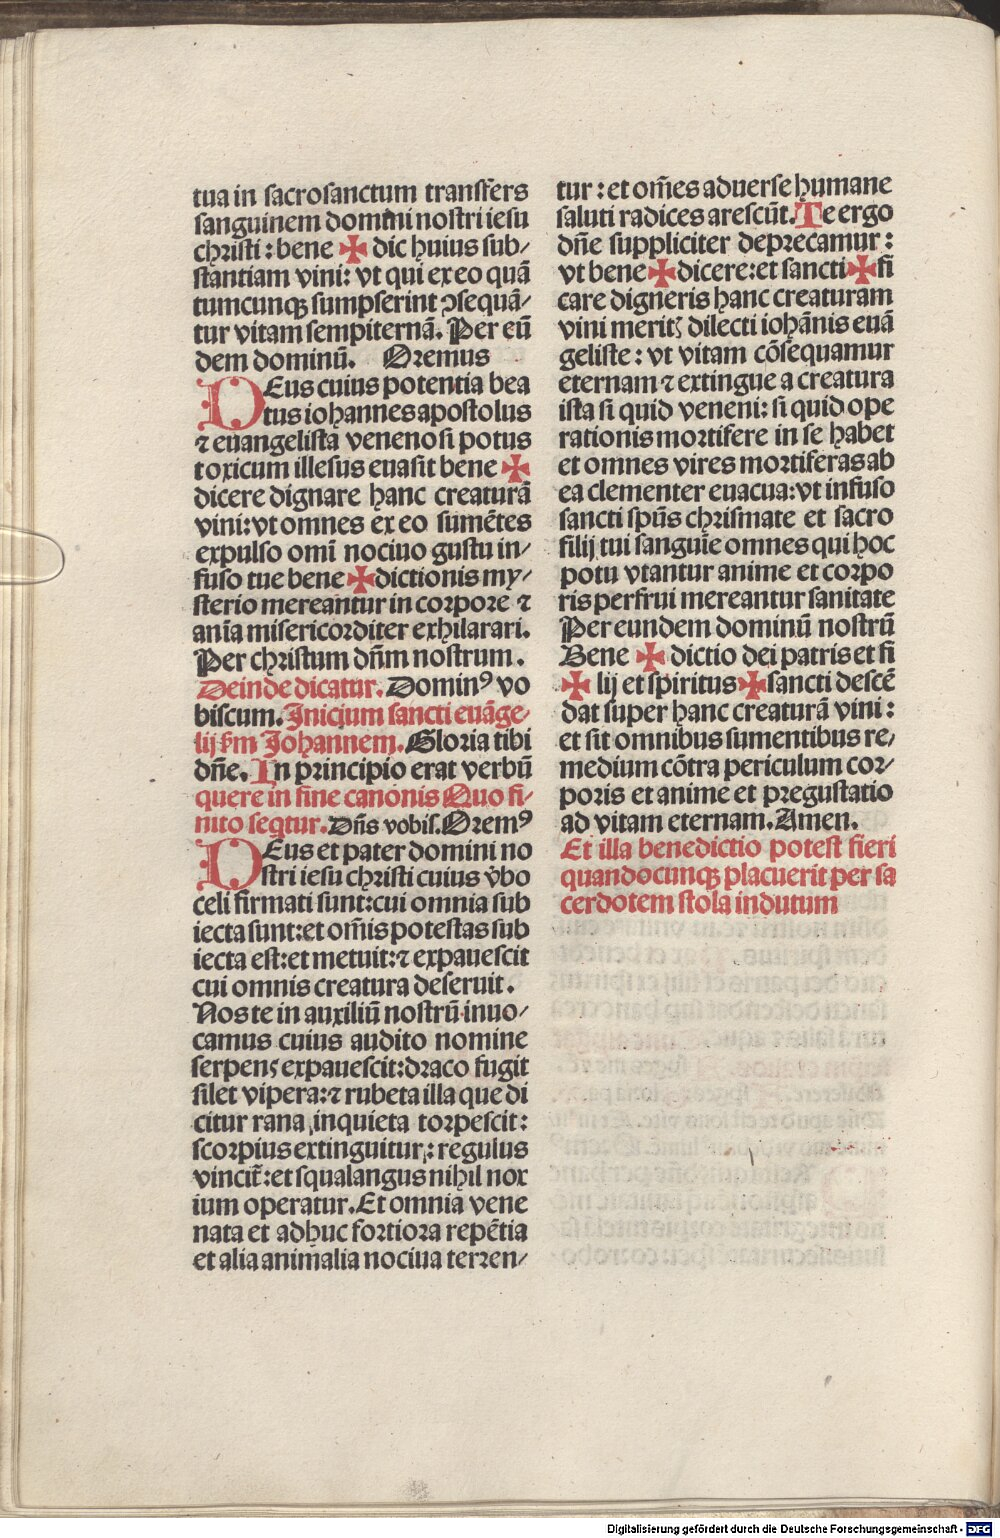 tua in sacrosanctum transfers
sanguinem domini nostri iesu
christi : bene ✠ dic huius sub⸗
stantiam vini: vt qui ex eo quā
tumcunqꝫ sumpserint ꝯsequā⸗
tur vitam sempiternā. Per eū
dem dominū. Oremus
DEus cuius potentia bea
tus iohannes apostolus
⁊ euangelista venenosi potus
toxicum illesus euasit bene ✠
dicere dignare hanc creaturā
vini: vt omnes ex eo sumētes
expulso omī nociuo gustu in⸗
fuso tue bene ✠ dictionis my⸗
sterio mereantur in corpore ⁊
anīa misericorditer exhilarari.
Per christum dn̄m nostrum.
Deinde dicatur. Dominꝰ vo
biscum. Inicium sancti euāge⸗
lij ẜm Johannem. Gloria tibi
dn̄e. In principio erat verbū
quere in fine canonis Quo fi⸗
nito seqtur. Dn̄s vobis. Oremꝰ
DEus et pater domini no
stri iesu christi cuius v̄bo
celi firmati sunt: cui omnia sub
iecta sunt: et om̄is potestas sub
iecta est: et metuit: ⁊ expauescit
cui omnis creatura deseruit.
Nos te in auxiliū nostrū inuo⸗
camus cuius audito nomine
serpens expauescit: draco fugit
silet vipera: ⁊ rubeta illa que di
citur rana inquieta torpescit:
scorpius extinguitur: regulus
vincit̄: et squalangus nihil nox
ium operatur. Et omnia vene
nata et adhuc fortiora repētia
et alia animalia nociua terren⸗
tur : et om̄es aduerse humane
saluti radices arescūt. Te ergo
dn̄e suppliciter deprecamur :
vt bene ✠ dicere: et sancti ✠ fi
care digneris hanc creaturam
vini meritꝭ dilecti iohānis euā
geliste : vt vitam cōsequamur
eternam ⁊ extingue a creatura
ista si quid veneni: si quid ope
rationis mortifere in se habet
et omnes vires mortiferas ab
ea clementer euacua: vt infuso
sancti spūs chrismate et sacro
filij tui sanguīe omnes qui hoc
potu vtantur anime et corpo
ris perfrui mereantur sanitate
Per eundem dominū nostrū
Bene ✠ dictio dei patris et fi
✠ lij et spiritus ✠ sancti descē
dat super hanc creaturā vini :
et sit omnibus sumentibus re⸗
medium cōtra periculum cor⸗
poris et anime et pregustatio
ad vitam eternam. Amen.
Et illa benedictio potest fieri
quandocunqꝫ placuerit per sa
cerdotem stola indutum
Digitalisierung gefördert durch die Deutsche Forschungsgemeinschaft - DFG